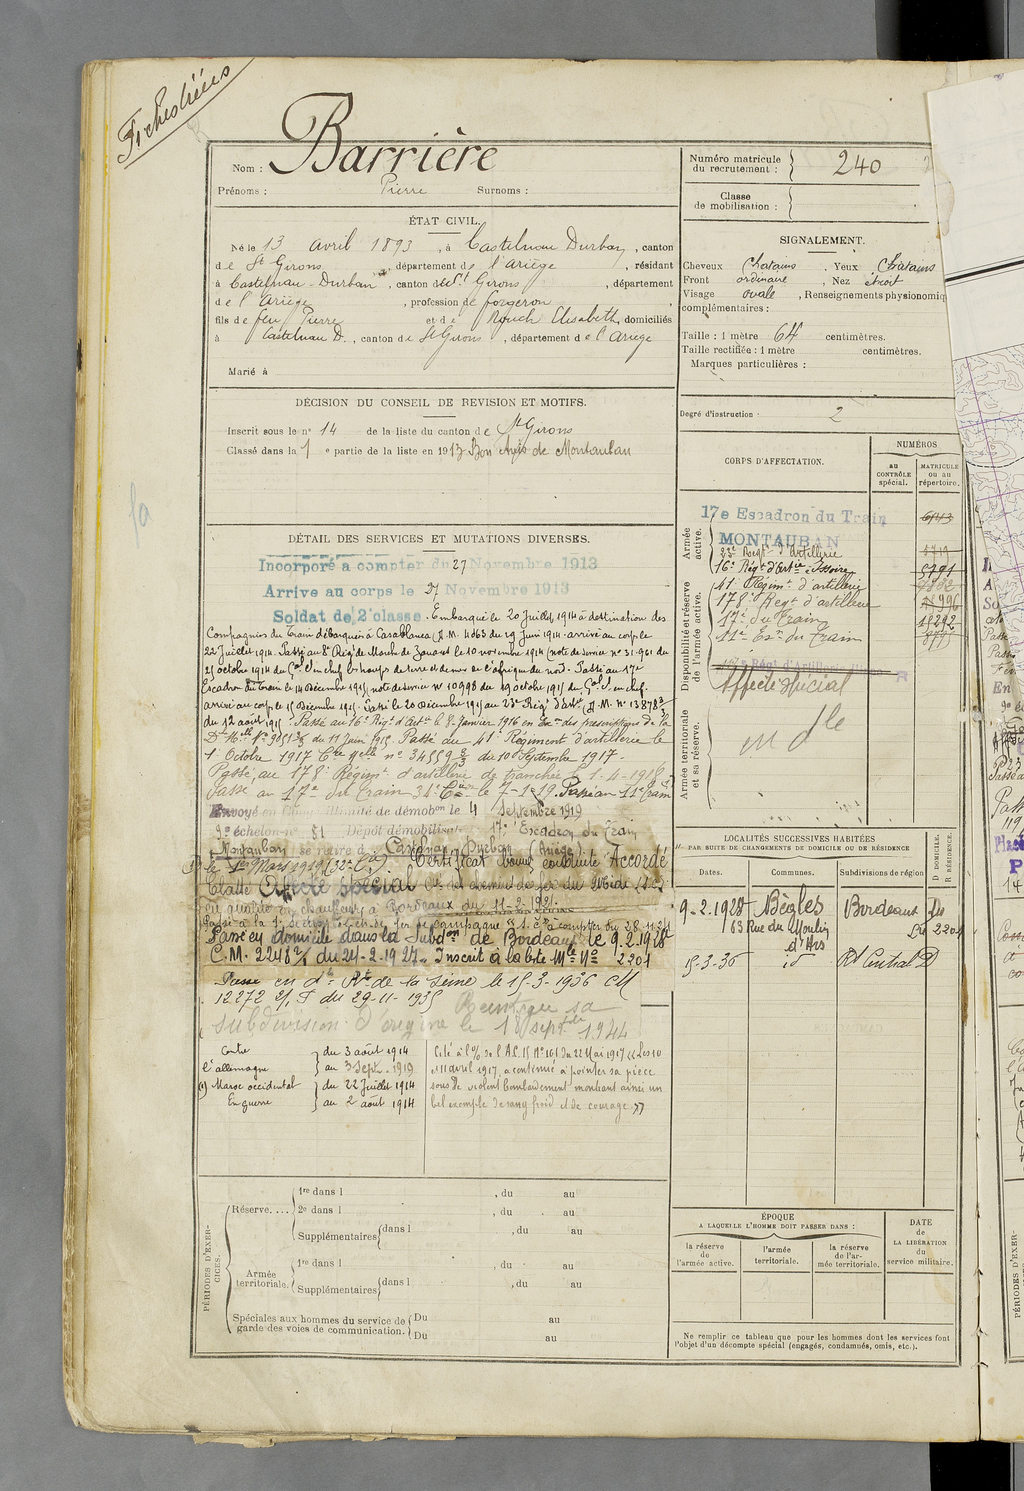 Fiches tirées
Nom : Barrière
Prénoms : Pierre Surnoms :
ÉTAT CIVIL.
Né le 13 avril 1893, à Castelnau Durban, canton
de St Girons, département de l'Ariège, résidant
à Castelnau-Durban, canton de St Girons, département
de l'Ariège, profession de forgeron
fils de feu Pierre et de Rouch Elisabeth, domiciliés
à Castelnau D., canton de St Girons, département de l'Ariège
Marié à
DÉCISION DU CONSEIL DE REVISION ET MOTIFS.
Inscrit sous le n° 14 de la liste du canton de St Girons
Classé dans la 1e partie de la liste en 1913 Bon de Montauban
DÉTAIL DES SERVICES ET MUTATIONS DIVERSES.
Incorporé a compter du 27 Novembre 1913
Arrive au corps le 27 Novembre 1913
Soldat de 2e classe. Embarqué le 20 Juillet 1914 à destination des
Compagnies du Train débarqué à Casablanca (D.M. 4063 du 29 Juin 1914 arrivé au corps le
22 Juillet 1914. Passé au 8e Régt de Marche de Zouaves le 10 novembre 1914 (note de service n° 31.961 du
25 octobre 1914 du Gal Ct en chef les troupes de terre et de mer de l'Afrique du nord. Passé au 17e
Escadron du train le 14 Décembre 1915 note de service n° 10998 du 19 octobre 1915 du Gal Ct en chef.
arrivé au corps le 15 Décembre 1915. Passé le 20 Décembre 1915 au 23e Régt d'Artie (D.M. n° 13878 3/3
du 12 août 1915. Passé au 16e Régt d'Artie le 8 Janvier 1916 en Exon des prescriptions de la
du 11 Juin 1915. Passé au 41e Régiment d'artillerie le
1 Octobre 1917 n° 34559 3/3 du 10 Septembre 1917.
Passé au 178e Régiment d'artillerie de tranchée le 1-4-1918
Passé au 17e du Train 31e Cie le 7-1-19. Passé au 11e Train
Envoyé en de démobon le 4 Septembre 1919
9e échelon n° 81 Dépôt démobilisateur 17e Escadron du Train
Montauban se retire à Castelnau Durban (Ariège).
Certificat bonne conduite Accordé
Classé Affecté spécial Cie des chemins de fer du Midi
en qualité de chauffeur à Bordeaux du 11-2-1921.
Passé en domicile dans la Subdon de Bordeaux le 9.2.1928
C.M. 2248 2/1 du 24-2-1927. Inscrit à la liste Mle No 2201
Passé en dle Rt de la Seine le 15-3-1936 CM
12272 2/1 T du 29-11-1935 Réintègre sa
subdivision d'origine le 18 septbre 1944
Contre } du 3 août 1914
l'allemagne } au 3 Sept. 1919
(1) Maroc occidental } du 22 Juillet 1914
En guerre } au 2 août 1914
Cité à l'O/ de l'A.C. 15 No 161 du 22 Mai 1917 « Les 10
et 11 avril 1917, a continué à pointer sa pièce
sous de violent bombardement montrant ainsi un
bel exemple de sang froid et de courage. »
PÉRIODES D'EXERCICES.
Réserve.... 1re dans l , du au
2e dans l , du au
Supplémentaires dans l , du au
Armée territoriale. 1re dans l , du au
Supplémentaires dans l , du au
Spéciales aux hommes du service de garde des voies de communication. Du au
Du au
Numéro matricule du recrutement : 240
Classe de mobilisation :
SIGNALEMENT.
Cheveux Chatains. Yeux Chatains
Front ordinaire, Nez étroit
Visage ovale, Renseignements physionomiq
complémentaires :
Taille : 1 mètre 64 centimètres.
Taille rectifiée : 1 mètre centimètres.
Marques particulières :
Degré d'instruction : 2
CORPS D'AFFECTATION.
NUMÉROS
AU CONTRÔLE spécial.
MATRICULE ou au répertoire.
Armée active.
17e Escadron du Train
MONTAUBAN
23e Regt d'Artillerie
16e Régt d'Artie Issoire
Disponibilité et réserve de l'armée active.
41e Régimt d'artillerie
178e Regt d'artillerie
17e du Train
11e Eon du Train
Affecté spécial
Armée territoriale et sa réserve.
en dle
LOCALITÉS SUCCESSIVES HABITÉES
PAR SUITE DE CHANGEMENTS DE DOMICILE OU DE RÉSIDENCE
Dates. Communes. Subdivisions de région D. DOMICILE. R. RÉSIDENCE.
9-2.1928 Bègles Bordeaux
163 Rue du Moulin 2201
d'Ars
15-3-36 id Rt Central D
ÉPOQUE
A LAQUELLE L'HOMME DOIT PASSER DANS :
la réserve de l'armée active.
l'armée territoriale.
la réserve de l'armée territoriale.
DATE DE LA LIBÉRATION du service militaire.
Ne remplir ce tableau que pour les hommes dont les services font
l'objet d'un décompte spécial (engagés, condamnés, omis, etc.).